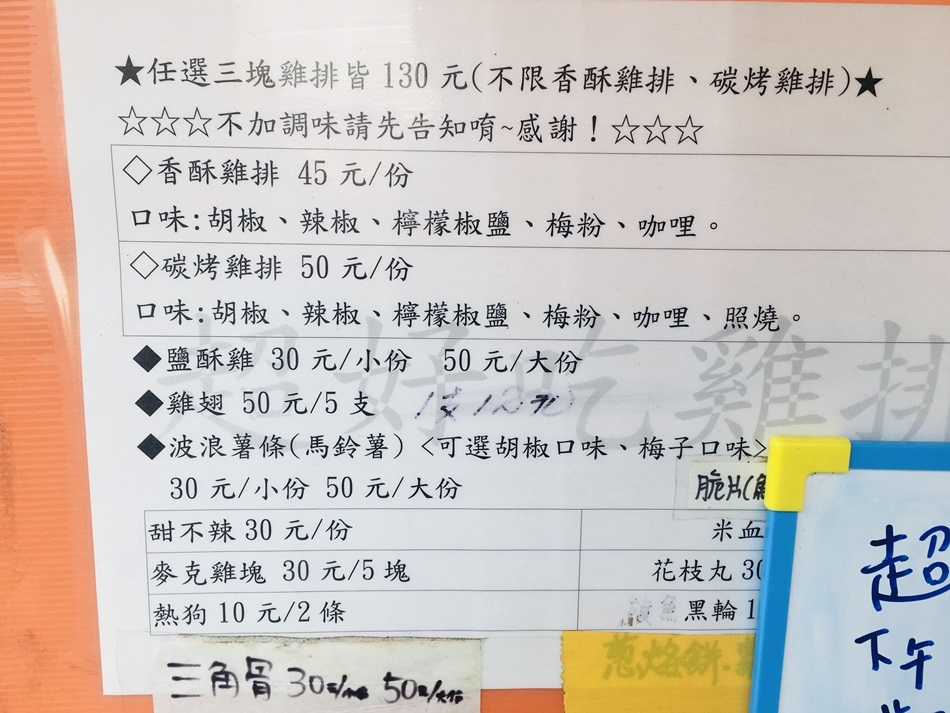 ★任選三塊雞排皆 130 元(不限香酥雞排、碳烤雞排)★
☆☆☆不加調味請先告知唷~感謝!☆☆☆
◇香酥雞排 45 元/份
口味:胡椒、辣椒、檸檬椒鹽、梅粉、咖哩。
◇碳烤雞排 50 元/份
口味:胡椒、辣椒、檸檬椒鹽、梅粉、咖哩、照燒。
超好吃雞排
◆鹽酥雞 30 元/小份 50 元/大份
◆雞翅 50 元/5 支 1支12元
◆波浪薯條(馬鈴薯) <可選胡椒口味、梅子口味>
30 元/小份 50 元/大份
脆片(
甜不辣 30 元/份 米血
麥克雞塊 30 元/5 塊 花枝丸 30
熱狗 10 元/2 條 黑輪 1
三角骨 30元/小份 50元/大份
蔥烙餅
超
下午